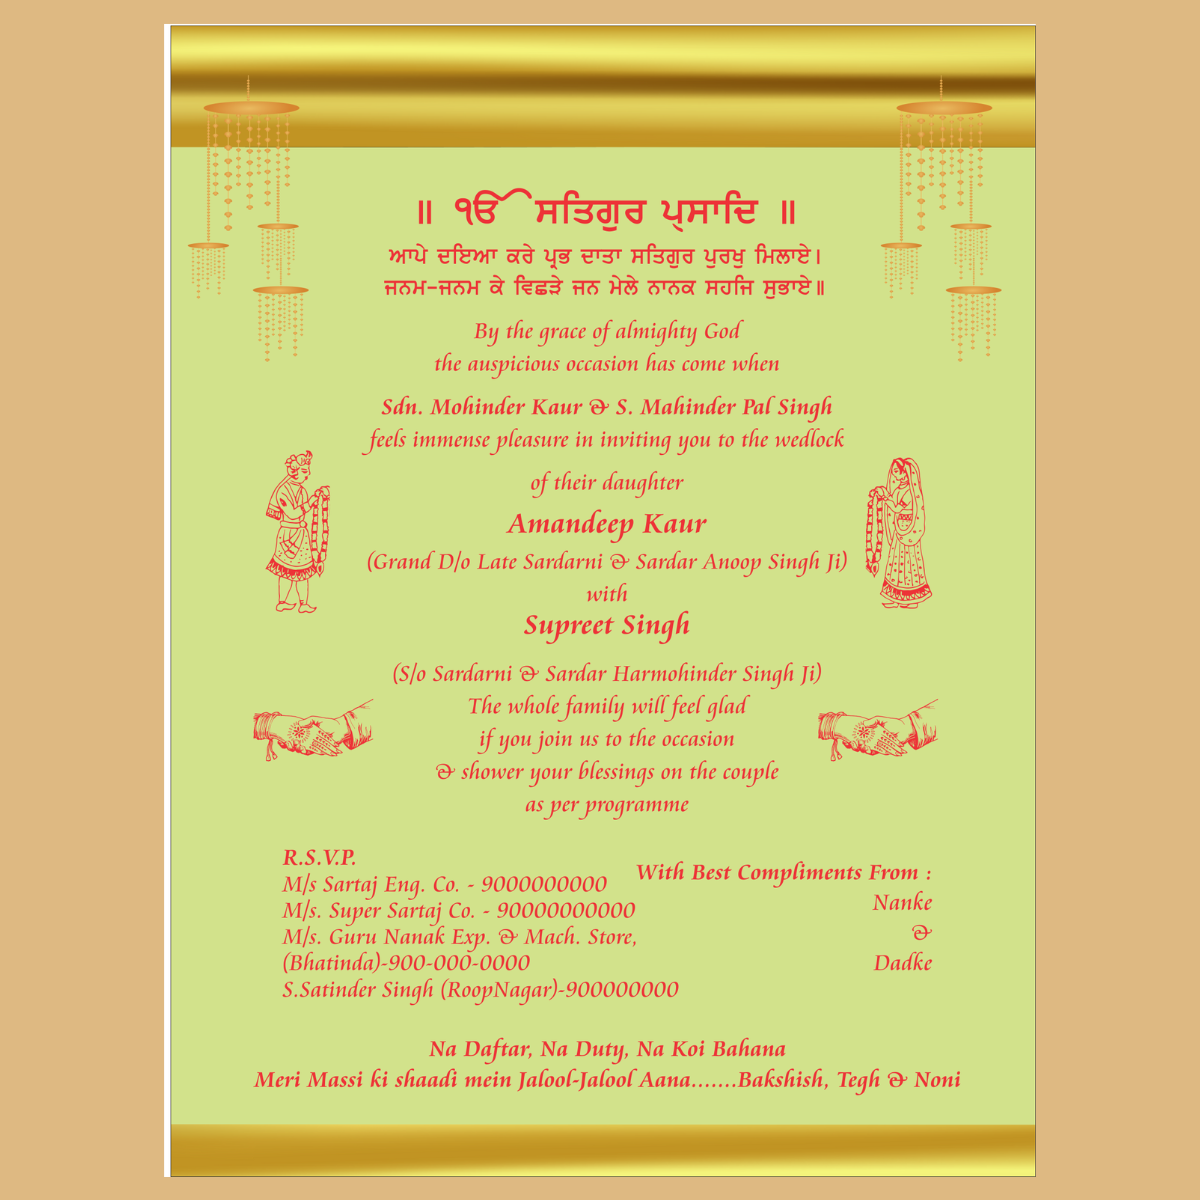 ॥ ੴ ਸਤਿਗੁਰ ਪ੍ਰਸਾਦਿ ॥
ਆਪੇ ਦਇਆ ਕਰੇ ਪ੍ਰਭ ਦਾਤਾ ਸਤਿਗੁਰ ਪੁਰਖੁ ਮਿਲਾਏ।
ਜਨਮ-ਜਨਮ ਕੇ ਵਿਛੜੇ ਜਨ ਮੇਲੇ ਨਾਨਕ ਸਹਜਿ ਸੁਭਾਏ॥
By the grace of almighty God
the auspicious occasion has come when
Sdn. Mohinder Kaur & S. Mahinder Pal Singh
feels immense pleasure in inviting you to the wedlock
of their daughter
Amandeep Kaur
(Grand D/o Late Sardarni & Sardar Anoop Singh Ji)
with
Supreet Singh
(S/o Sardarni & Sardar Harmohinder Singh Ji)
The whole family will feel glad
if you join us to the occasion
& shower your blessings on the couple
as per programme
R.S.V.P.
M/s Sartaj Eng. Co. - 9000000000
M/s. Super Sartaj Co. - 90000000000
M/s. Guru Nanak Exp. & Mach. Store,
(Bhatinda)-900-000-0000
S.Satinder Singh (RoopNagar)-900000000
With Best Compliments From :
Nanke
&
Dadke
Na Daftar, Na Duty, Na Koi Bahana
Meri Massi ki shaadi mein Jalool-Jalool Aana.......Bakshish, Tegh & Noni